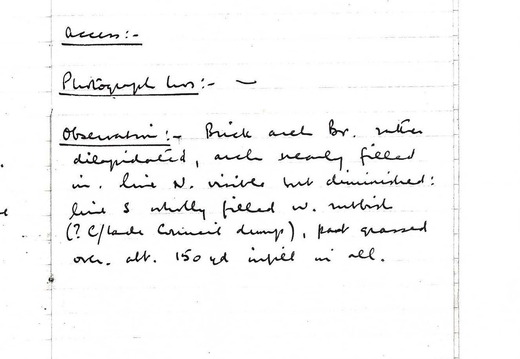 Access:-
Photograph nos:- —
Observation:- Brick arch Br. rather
dilapidated, arch nearly filled
in. line N. visible but diminished:
line S wholly filled w. rubbish
(? C/lade Council dump), part grassed
over. alt. 150 yd infill in all.